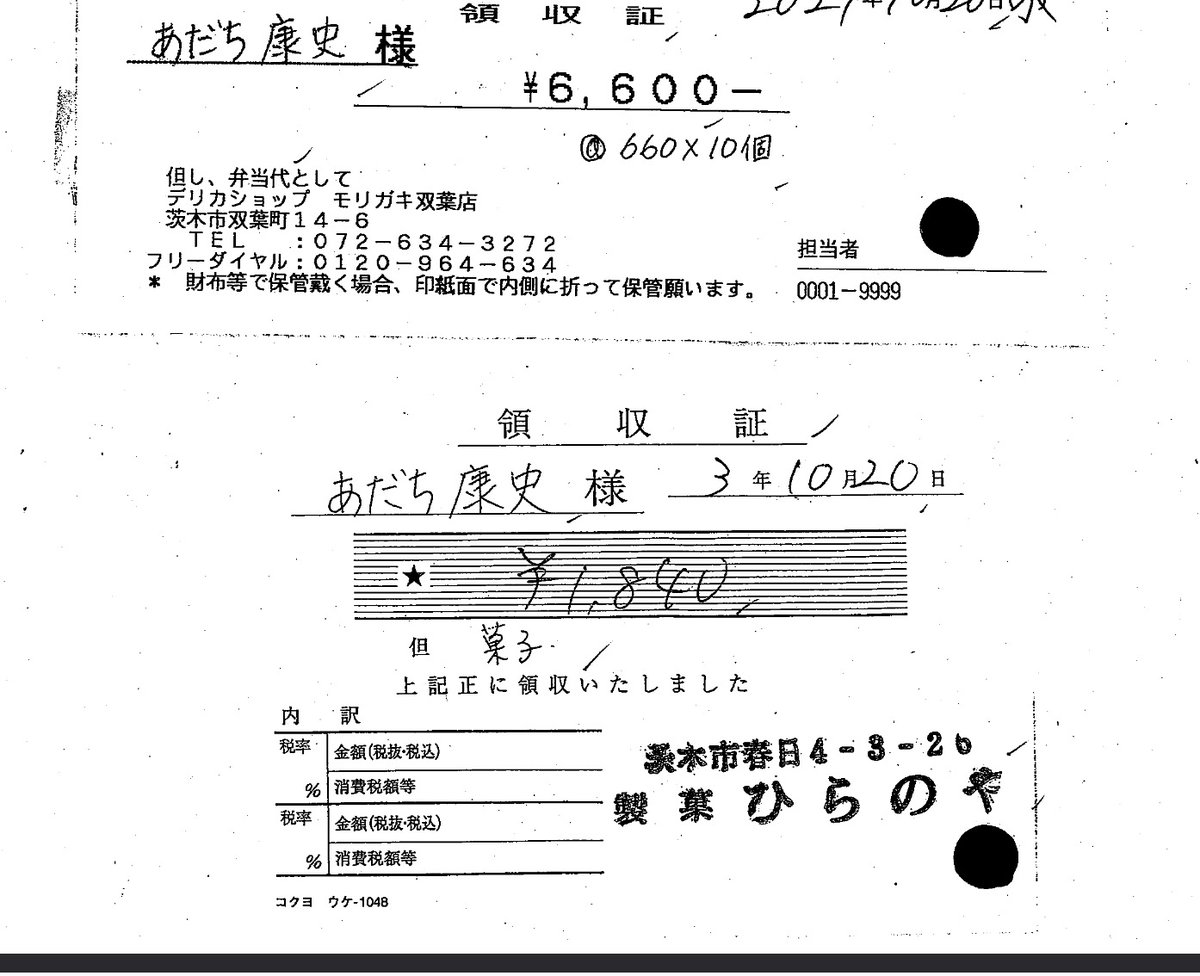 領収証 2021年10月20日
あだち康史 様
¥6,600-
@660×10個
但し、弁当代として
デリカショップ モリガキ双葉店
茨木市双葉町14-6
TEL :072-634-3272
フリーダイヤル:0120-964-634
担当者
* 財布等で保管戴く場合、印紙面で内側に折って保管願います。
0001-9999
領収証
あだち康史 様 3年10月20日
★ ¥1,840
但 菓子
上記正に領収いたしました
内訳
税率 金額(税抜・税込)
% 消費税額等
税率 金額(税抜・税込)
% 消費税額等
茨木市春日4-3-26
製菓 ひらのや
コクヨ ウケ-1048